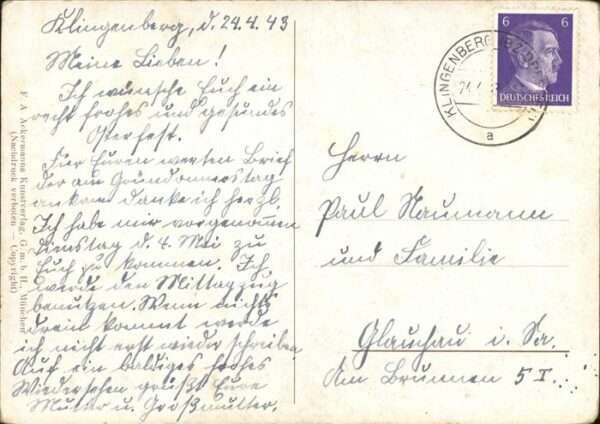 Klingenberg, d. 24.4.43
Meine Lieben!
Ich wünsche Euch ein
recht frohes und gesundes
Osterfest.
Für Euren werten Brief
der am Gründonnerstag
ankam danke ich herzl.
Ich habe mir vorgenommen
Dienstag d. 4. Mai zu
Euch zu kommen. Ich
werde den Mittagzug
benutzen. Wenn nichts
drein kommt werde
ich nicht erst wieder schreiben
Auf ein baldiges frohes
Wiedersehen grüßt Eure
Mutter u. Großmutter.
F. A. Ackermanns Kunstverlag, G. m. b. H., München
(Nachdruck verboten — Copyright)
6 6
DEUTSCHES REICH
KLINGENBERG
24.4
a
Herrn
Paul Naumann
und Familie
Glauchau i. Sa.
Am Brunnen 5 I.